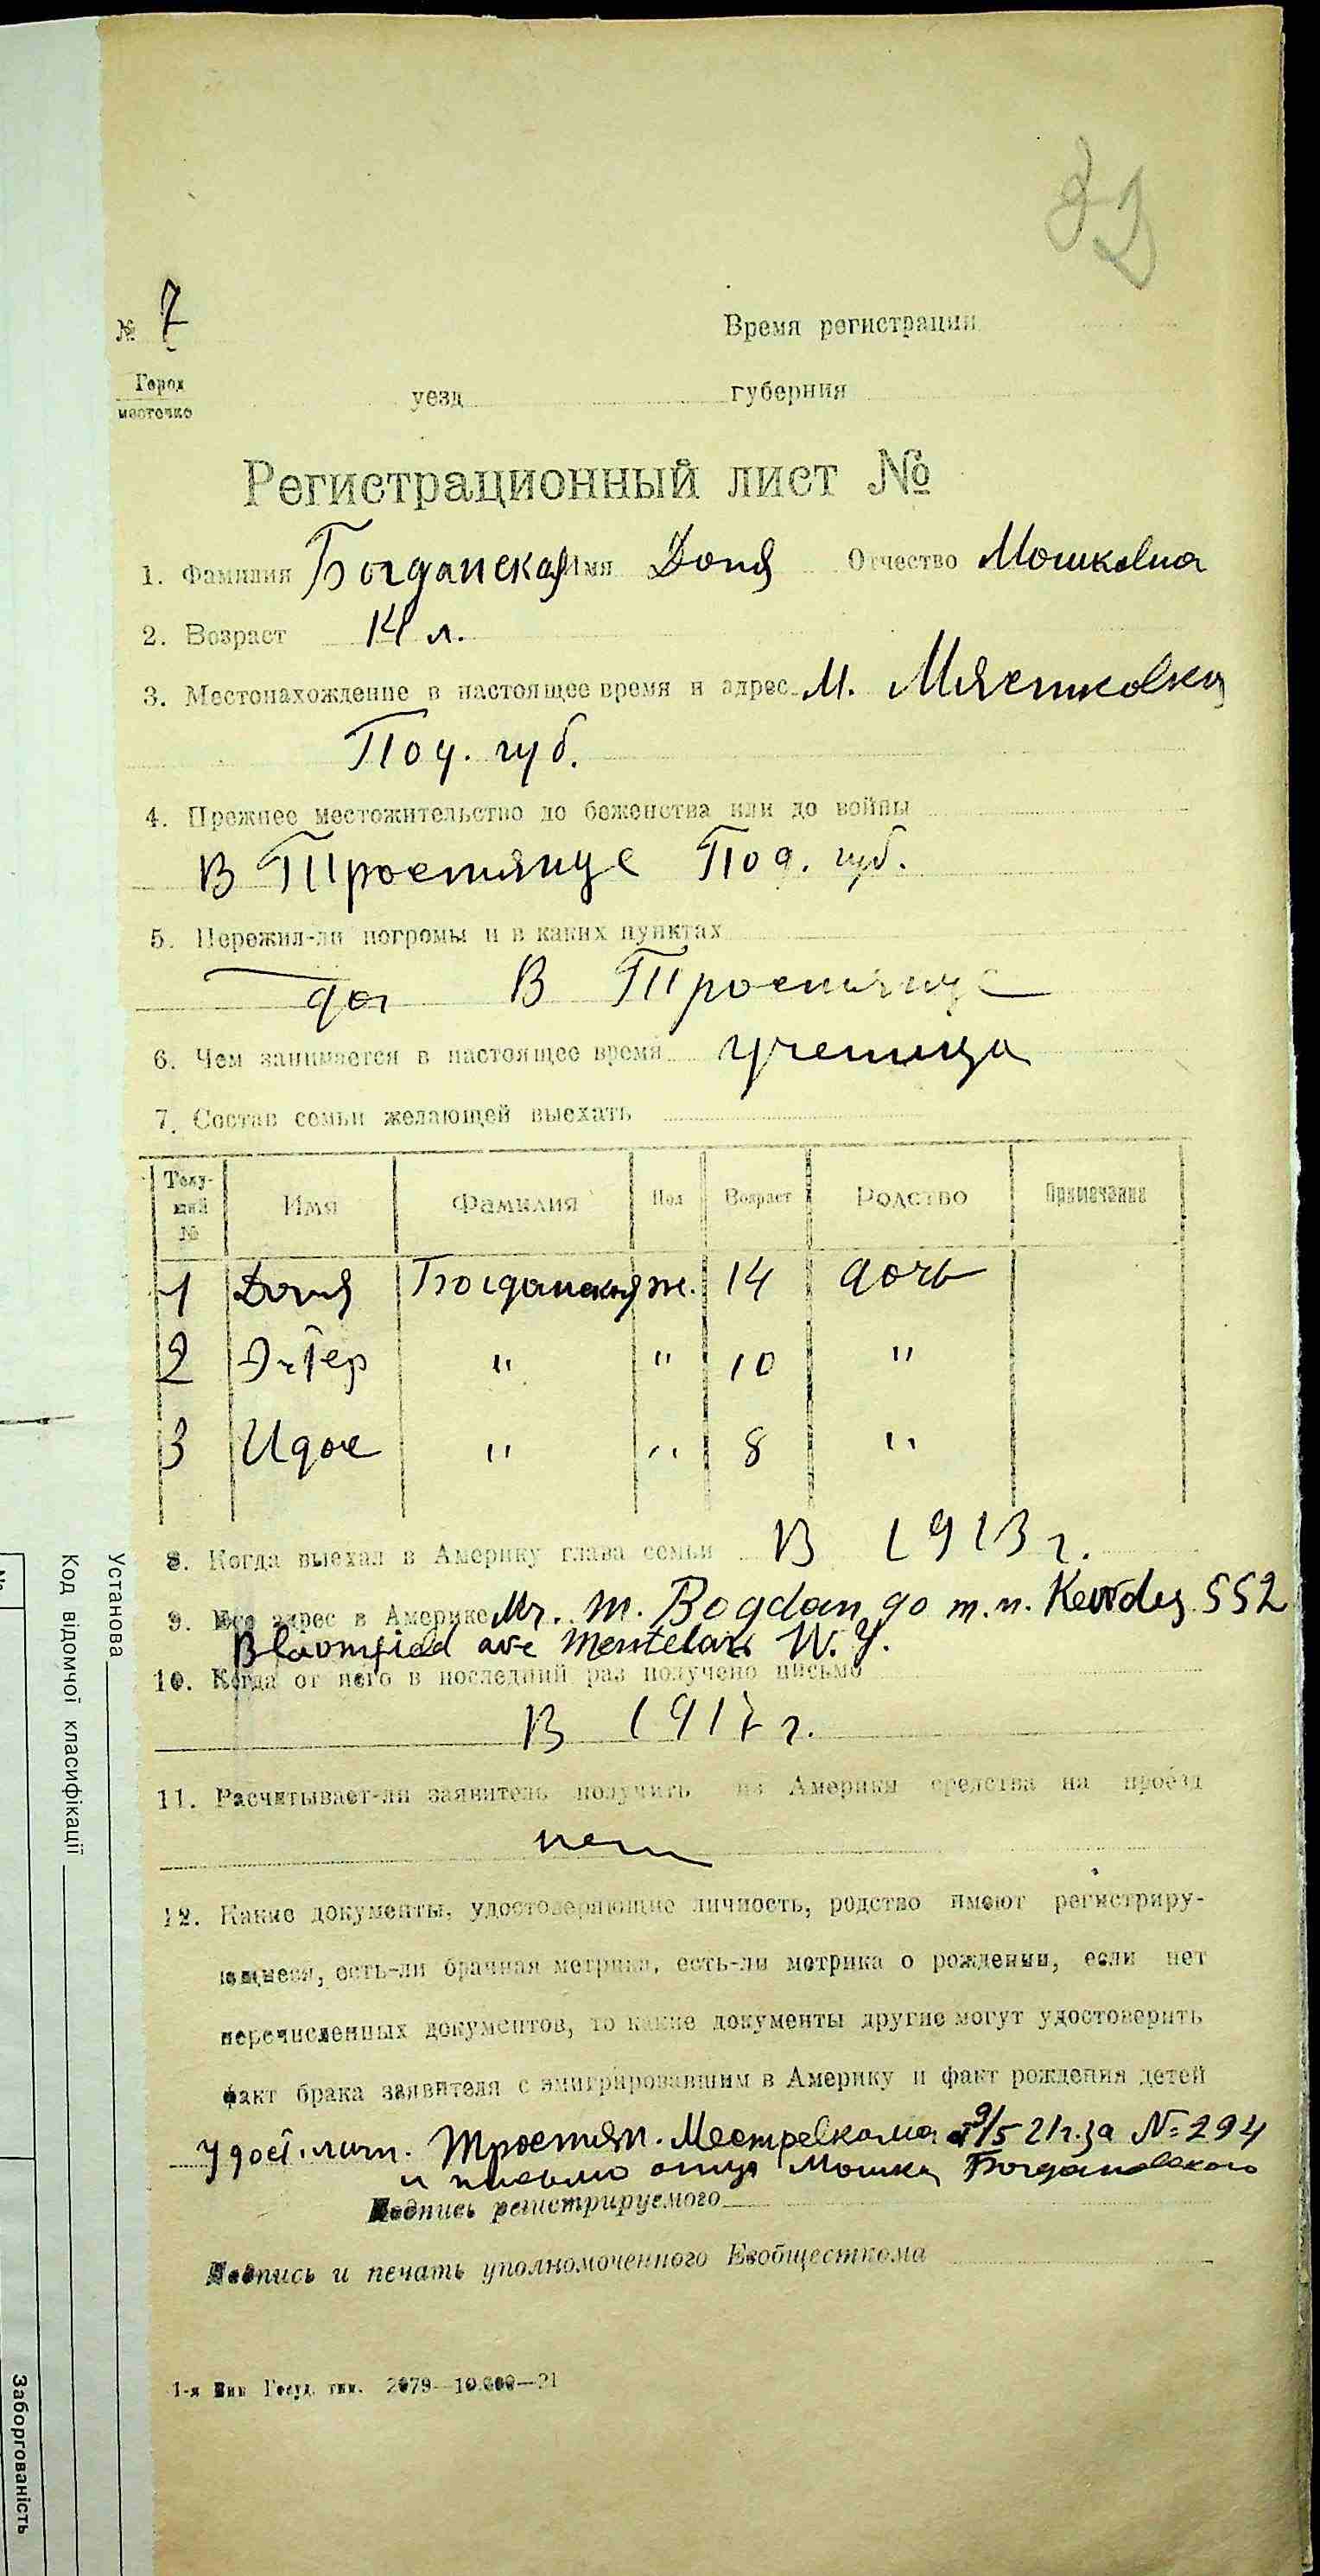 32
№ 7 Время регистрации
Город
местечко уезд губерния
Регистрационный лист №
1. Фамилия Богданская Имя Доня Отчество Мошковна
2. Возраст 14 л.
3. Местонахождение в настоящее время и адрес М. Мястковка
Под. губ.
4. Прежнее местожительство до беженства или до войны
В Тростянце Под. губ.
5. Пережил-ли погромы и в каких пунктах
да В Тростянце
6. Чем занимается в настоящее время ученица
7. Состав семьи желающей выехать
Теку-
щий
№ Имя Фамилия Пол Возраст Родство Примечание
1 Доня Богданская ж. 14 дочь
2 Эстер " " 10 "
3 " " 8 "
8. Когда выехал в Америку глава семьи В 1913 г.
9. Его адрес в Америке Mr. M. Bogdan 552
Bloomfield ave
10. Когда от него в последний раз получено письмо
В 1917 г.
11. Расчитывает-ли заявитель получить из Америки средства на проезд
нет
12. Какие документы, удостоверяющие личность, родство имеют регистриру-
ющиеся, есть-ли брачная метрика, есть-ли метрика о рождении, если нет
перечисленных документов, то какие документы другие могут удостоверить
факт брака заявителя с эмигрировавшим в Америку и факт рождения детей
Удост. личн. Тростян. Местревкома от 9/5 21 г. за № 294
и письмо отца Мошка Богдановского
Подпись регистрируемого
Подпись и печать уполномоченного Евобщесткома
1-я Вин Госуд. тип. 2079—10.000—21
Установа
Код відомчої класифікації
Заборгованість